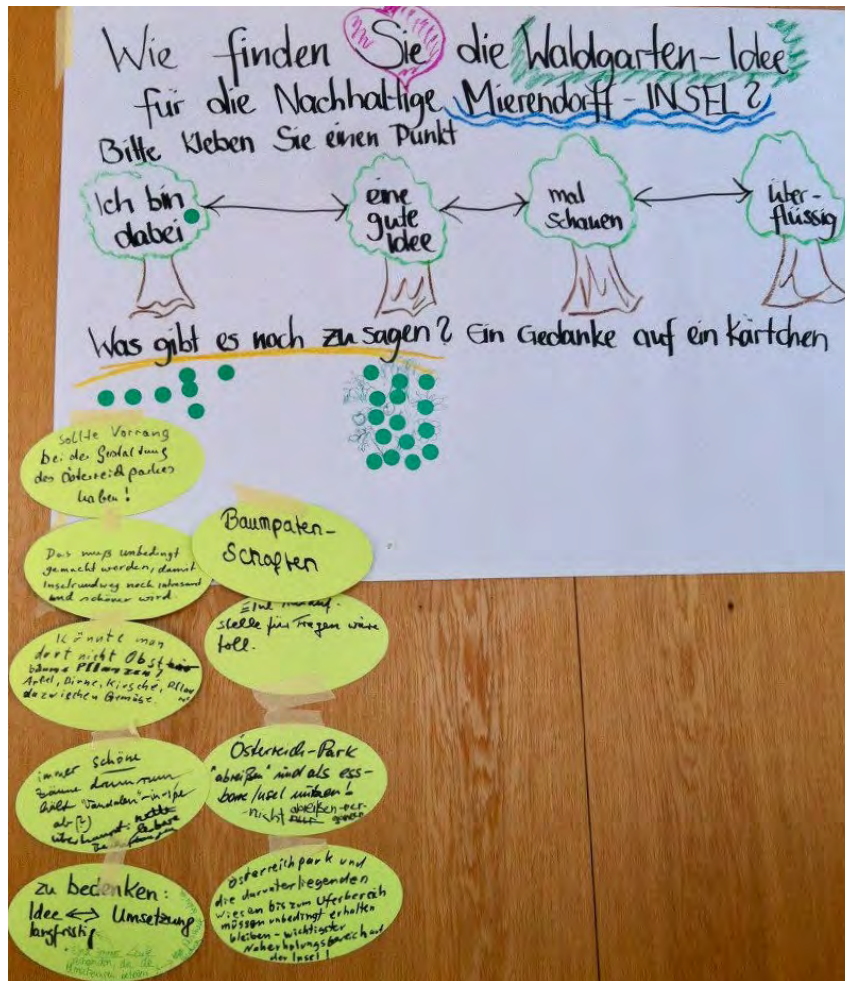 Wie finden Sie die Waldgarten-Idee
für die Nachhaltige Mierendorff-INSEL?
Bitte kleben Sie einen Punkt
Ich bin
dabei
eine
gute
Idee
mal
schauen
über-
flüssig
Was gibt es noch zu sagen? Ein Gedanke auf ein Kärtchen
Sollte Vorrang
bei der Gestaltung
des Österreichparkes
haben!
Das muß unbedingt
gemacht werden, damit
Inselrundweg noch
und schöner wird.
Könnte man
dort nicht Obst
bäume Pflanzen?
Apfel, Birne, Kirsche,
dazwischen Gemüse.
immer schöne
ab (?)
überhaupt:
zu bedenken:
Idee <-> Umsetzung
langfristig
Baumpaten-
Schaften
Eine
stelle für Fragen wäre
toll.
Österreich-Park
"abreißen" und als ess-
bare Insel nutzen!
-nicht abreißen-
Österreichpark und
die darunterliegenden
Wiesen bis zum Uferbereich
müssen unbedingt erhalten
bleiben - wichtigster
Naherholungsbereich auf
der Insel!